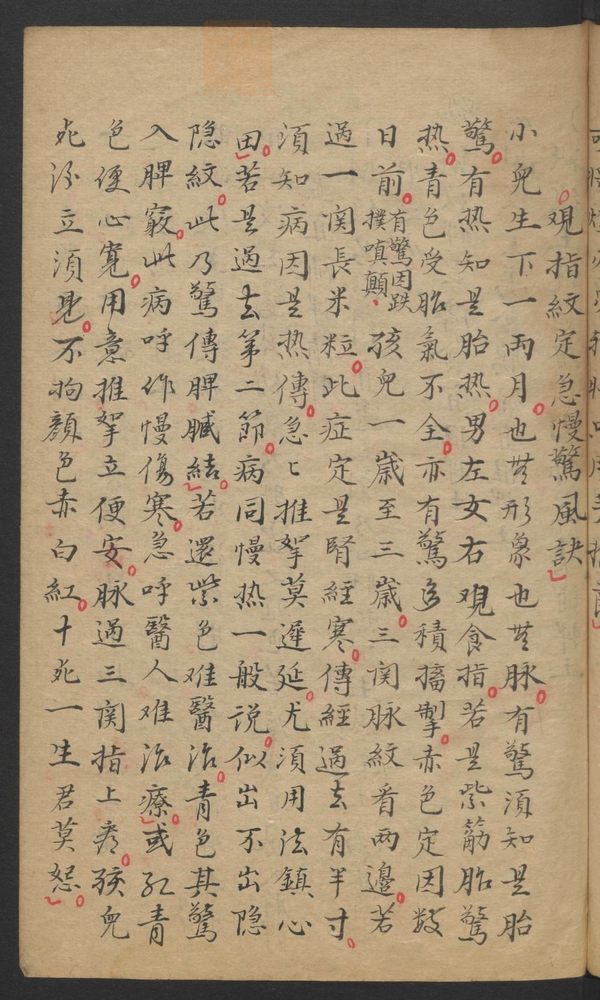 觀指紋定急慢驚風訣
小兒生下一兩月也無形象也無脉有驚須知是胎
驚有热知是胎热男左女右观食指若是紫筋胎驚
热青色受胎氣不全亦有驚 積搐掣赤色定因数
日前有驚因跌撲嗔顛孩兒一歲至三歲三関脉紋看两邊若
過一関長米粒此症定是腎經寒傳經過去有半寸
須知病因是热傳急〻推拏莫遲延尤須用法鎮心
田若是過去第二節病同慢热一般說似出不出隐
隐紋此乃驚傳脾臟結若還紫色难醫治青色其驚
入脾竅此病呼作慢傷寒急呼醫人难治療或紅青
色便心寛用意推拏立便安脉過三関指上 孩兒
死 立須見不拘顏色赤白紅十死一生君莫怨